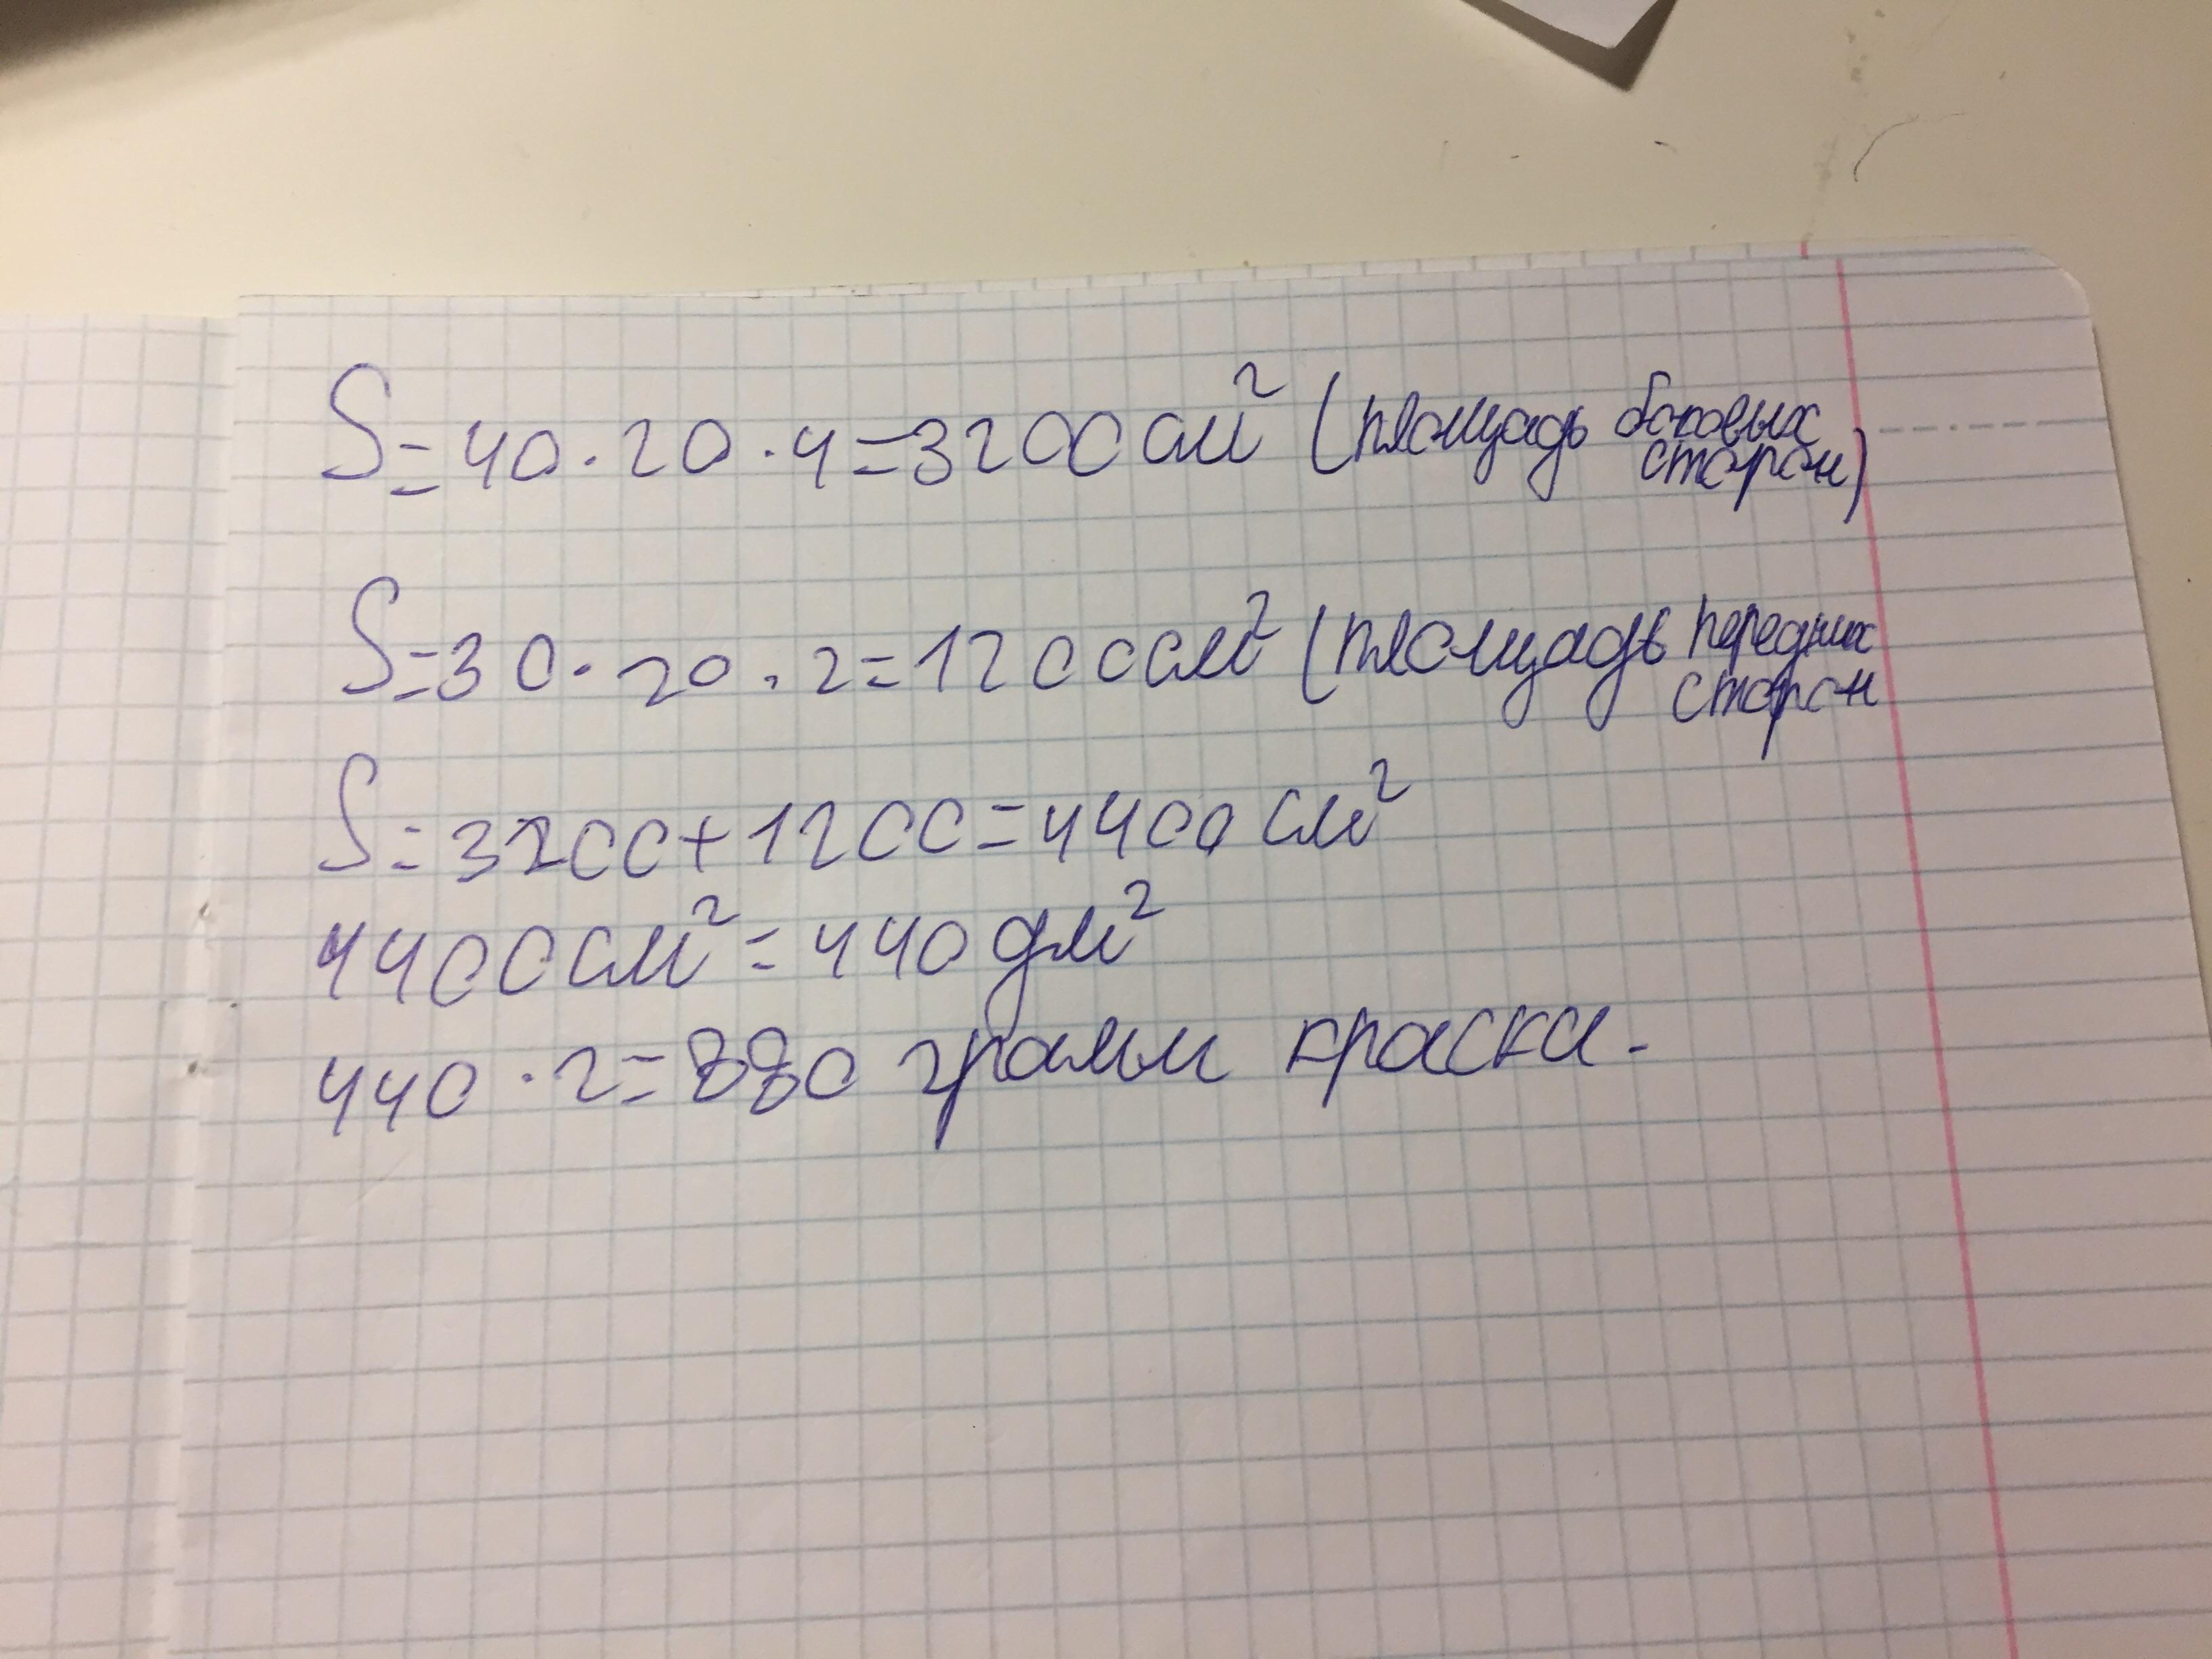 S=40·20·4=3200см² (площадь боковых
сторон)
S=30·20·2=1200см² (площадь передних
сторон
S=3200+1200=4400см²
4400см²=440дм²
440·2=880 грамм краски.